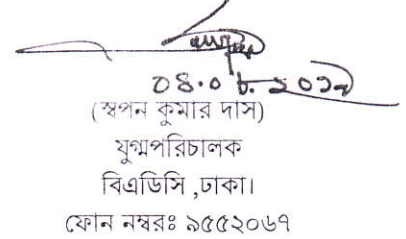 (স্বপন কুমার দাস)
যুগ্মপরিচালক
বিএডিসি ,ঢাকা।
ফোন নম্বরঃ ৯৫৫২০৬৭